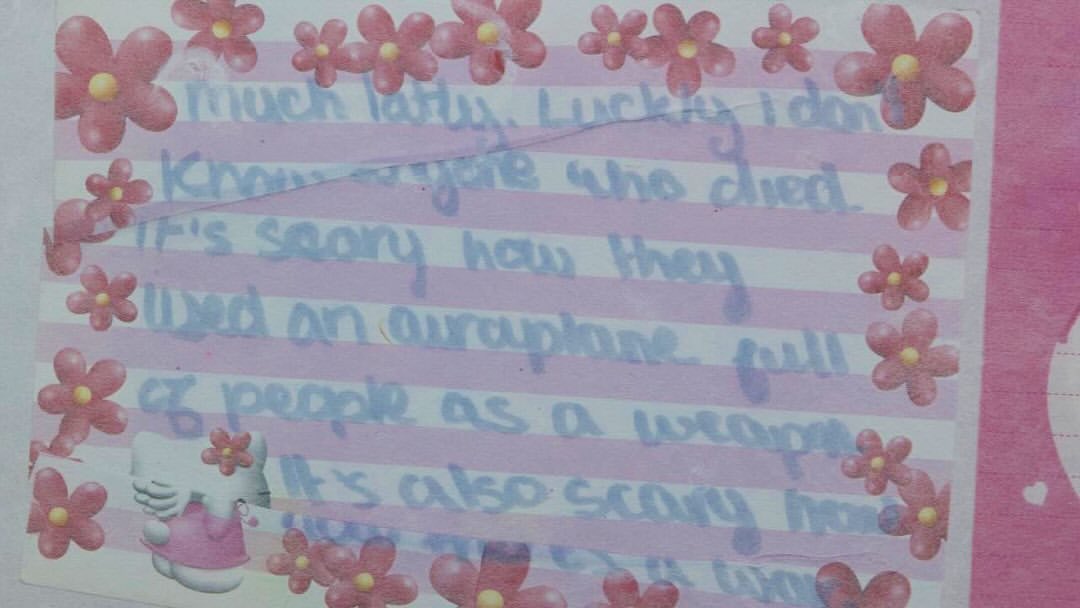 much latly. Luckly I don't
Know anyone who died.
It's scary how they
Used an airaplane full
of people as a weapon
It's also scary how
is a war